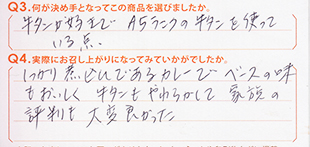 Q3.何が決め手となってこの商品を選びましたか。
牛タンが好きで A5ランクの牛タンを使って
いる点.
Q4.実際にお召し上がりになってみていかがでしたか。
しっかり煮込んであるカレーで ベースの味
もおいしく 牛タンもやわらかくて 家族の
評判も 大変良かった